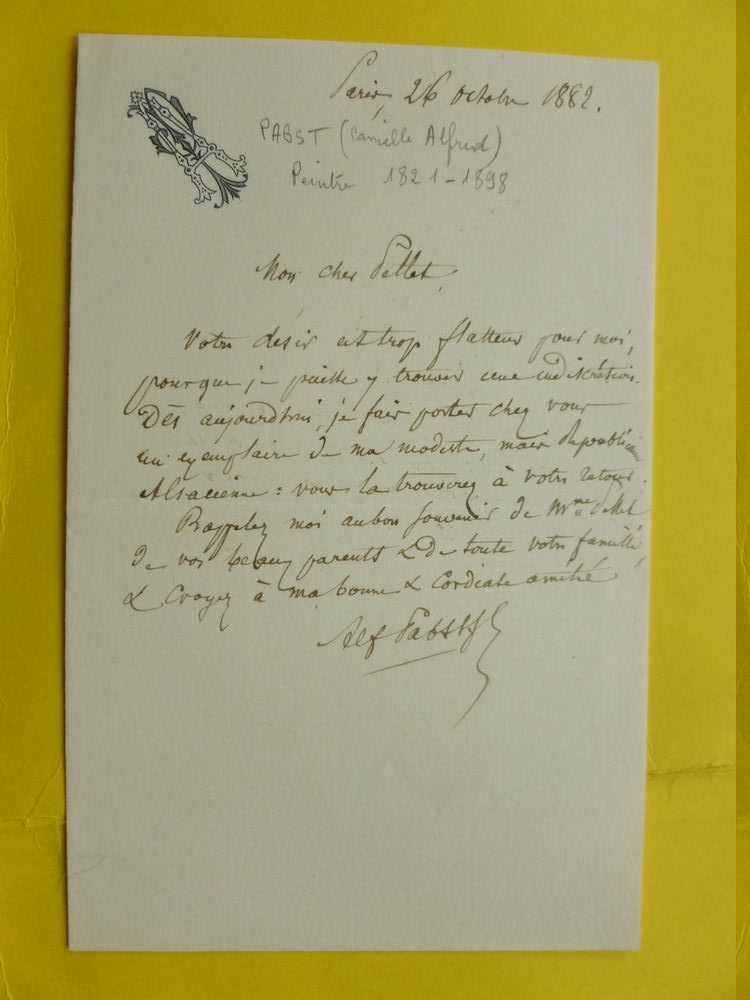 Paris, 26 Octobre 1882.
PABST (Camille Alfred)
Peintre 1821-1898
Mon cher Pellet,
Votre désir est trop flatteur pour moi,
pour que je puisse y trouver une indiscrétion.
Dès aujourd'hui, je fais porter chez vous
un exemplaire de ma modeste, mais Républicaine
Alsacienne : vous la trouverez à votre retour.
Rappelez moi au bon souvenir de Mme Pellet
de vos beaux parents & de toute votre famille,
& Croyez à ma bonne & Cordiale amitié
Alf Pabst